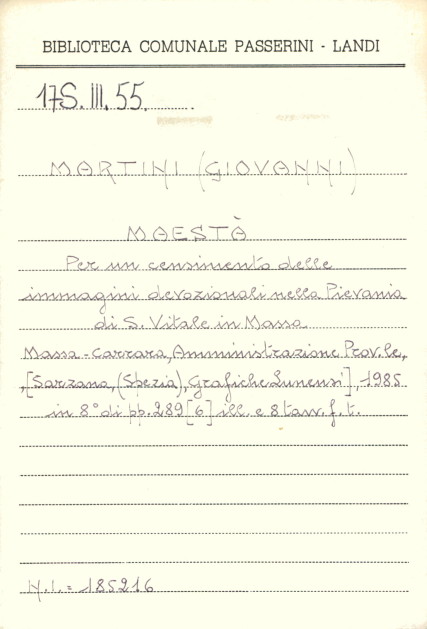 BIBLIOTECA COMUNALE PASSERINI - LANDI
17S.III.55.
MARTINI (GIOVANNI)
MAESTÀ
Per un censimento delle
immagini devozionali nella Pievania
di S. Vitale in Massa
Massa-Carrara, Amministrazione Prov.le,
,[Sarzana, (Spezia), Grafiche Lunensi], 1985
in 8° di pp. 289 [6] ill. e 8 tavv. f. t.
N.I.= 185216